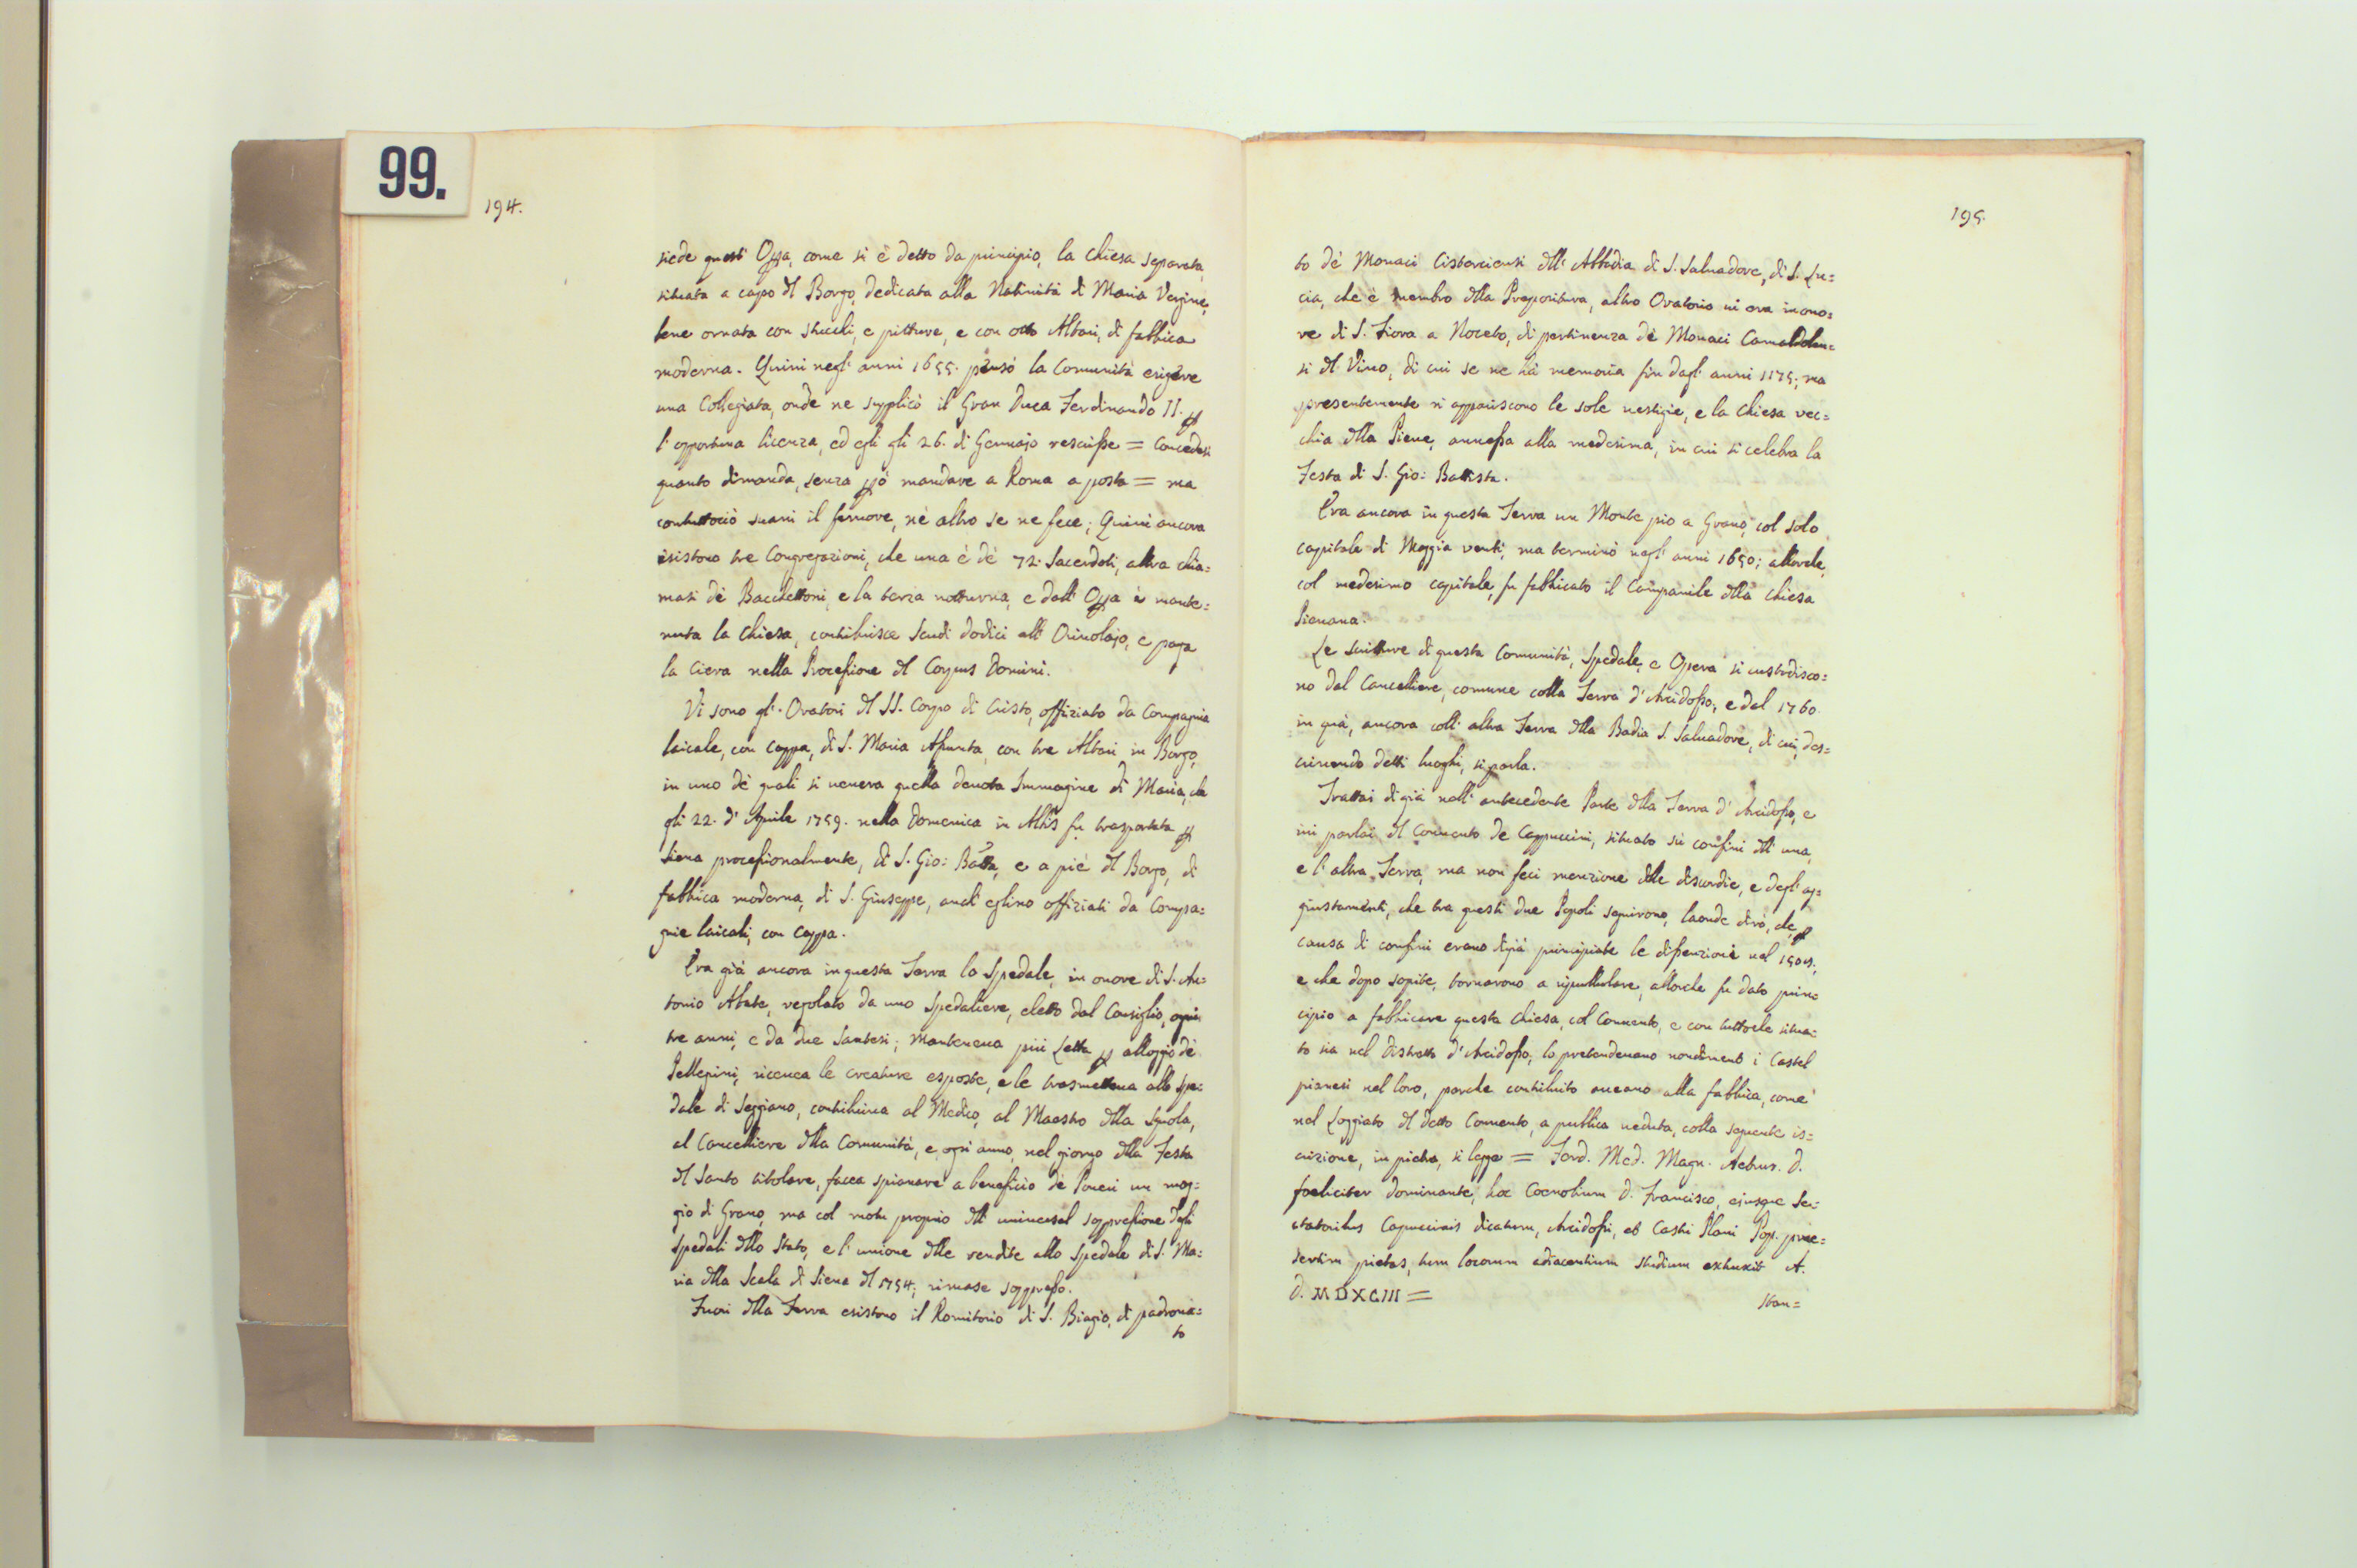 99.
194.
siede quest' Opa, come si è detto da principio, la Chiesa separata,
situata a capo dl Borgo, dedicata alla Natività di Maria Vergine,
bene ornata con stucchi, e pitture, e con otto Altari, di fabbrica
moderna. Quivi negl' anni 1655. pensò la Comunità erigere
una Collegiata, onde ne supplicò il Gran Duca Ferdinando II. p
l' opportuna licenza, ed egli gli 26. di Gennajo rescrisse = Concedesi
quanto dimanda, senza pò mandare a Roma a posta = ma
contuttociò svanì il fervore, nè altro se ne fece; Quivi ancora
esistono tre Congregazioni, che una è dè 72. Sacerdoti, altra chia=
masi dè Bacchettoni, e la terza notturna, e dall' Opa è mante=
nuta la Chiesa, contribuisce Scudi dodici all' Oriolajo, e paga
la Ciera nella Processione dl Corpus Domini.
Vi sono gl' Oratori dl SS. Corpo di Cristo, offiziato da Compagnia
laicale, con Cappa, di S. Maria Assunta, con tre Altari in Borgo,
in uno dè quali si venera quella devota Immagine di Maria, che
gli 22. d' Aprile 1759. nella Domenica in Albis fu trasportata p
Siena processionalmente, di S. Gio: Batta, e a piè dl Borgo, di
fabbrica moderna, di S. Giuseppe, anch' eglino offiziati da Compa=
gnie laicali, con Cappa.
Era già ancora in questa Terra lo Spedale, in onore di S. An=
tonio Abate, regolato da uno Spedaliere, eletto dal Consiglio, ogni
tre anni, e da due Santesi; manteneva più Letta p alloggio dè
Pellegrini, riceveva le creature esposte, e le trasmetteva allo Spe=
dale di Seggiano, contribuiva al Medico, al Maestro dlla Squola,
al Cancelliere dlla Comunità, e ogni anno, nel giorno dlla Festa
dl Santo titolare, faceva spianare a benefizio dè Poveri un mog=
gio di Grano, ma col motu proprio dll' universal soppressione degli
Spedali dllo Stato, e l' unione dlle rendite allo Spedale di S. Ma=
ria dlla Scala di Siena dl 1754; rimase soppresso.
Fuori dlla Terra esistono il Romitorio di S. Biagio, di padrona=
to
195.
to dè Monaci Cisterciensi dll' Abbadia di S. Salvadore, di S. Lu=
cia, che è membro dlla Prepositura, altro Oratorio vi era in ono=
re di S. Fiora a Noceto, di pertinenza dè Monaci Camaldolen=
si dl Vivo, di cui se ne hà memoria fin dagl' anni 1175; ma
presentemente vi appariscono le sole vestigie, e la Chiesa vec=
chia dlla Pieve, annessa alla medesima, in cui si celebra la
Festa di S. Gio: Battista.
Era ancora in questa Terra un Monte pio a Grano, col solo
capitale di Moggia venti, ma terminò negl' anni 1650; allorche,
col medesimo capitale, fu fabbricato il Campanile dlla Chiesa
Pievana.
Le Scritture di questa Comunità, Spedale, e Opera si custodisco=
no dal Cancelliere, comune colla Terra d' Arcidosso, e dal 1760.
in quà, ancora coll' altra Terra dlla Badia S. Salvadore, di cui, des=
crivendo detti luoghi, si parla.
Trattai di già nell' antecedente Parte dlla Terra d' Arcidosso, e
ivi parlai dl Convento de Cappuccini, situato sù confini dll' una,
e l' altra Terra, ma non feci menzione dlle discordie, e degl' ag=
giustamenti, che tra questi due Popoli seguirono, laonde dirò, che p
causa di confini erano digià principiate le dissenzioni nel
e che dopo sopite, tornarono a ripullulare, allorche fu dato prin=
cipio a fabbricare questa Chiesa, col Convento, e con tuttoche situa=
to sia nel Distretto d' Arcidosso, lo pretendevano nondimeno i Castel
pianesi nel loro, perche contribuito aveano alla fabbrica, come
nel Loggiato dl detto Convento, a pubblica veduta, colla seguente is=
crizione, in pietra, si legge = Ferd. Med. Magn. Aetrur. D.
foeliciter dominante, hoc Coenobium D. Francisco, ejusque Se=
ctatoribus Capuccinis dicatum, Arcidossi, et Castri Plani Pop. prae=
sertim pietas, tum locorum adiacentium studium extruxit A.
D. MDXCIII =
Stan=